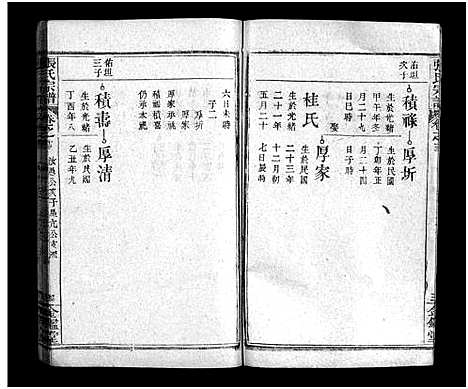 張氏宗譜
佑坦
次子
積祿
生於光緒
甲午年冬
月二十七
日巳時
娶
桂氏
生於光緒
二十一年
五月二十
六日未時
子二
厚圻
厚家
厚家承祧
仍承本
厚圻
生於民國
丁卯年正
月二十四
日子時
厚家
生於民國
二十三年
十二月初
七日辰時
金鑑堂
張氏宗譜
佑坦
三子
積壽
生於光緒
丁酉年八
厚清
生於民國
乙丑年九
金鑑堂